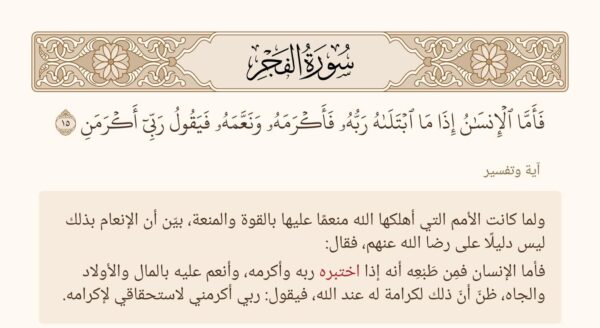 سُورَةُ الفَجْرِ
فَأَمَّا ٱلۡإِنسَٰنُ إِذَا مَا ٱبۡتَلَىٰهُ رَبُّهُۥ فَأَكۡرَمَهُۥ وَنَعَّمَهُۥ فَيَقُولُ رَبِّيٓ أَكۡرَمَنِ ١٥
آية وتفسير
ولما كانت الأمم التي أهلكها الله منعمًا عليها بالقوة والمنعة، بيّن أن الإنعام بذلك
ليس دليلًا على رضا الله عنهم، فقال:
فأما الإنسان فمِن طَبْعِه أنه إذا اختبره ربه وأكرمه، وأنعم عليه بالمال والأولاد
والجاه، ظنّ أنّ ذلك لكرامة له عند الله، فيقول: ربي أكرمني لاستحقاقي لإكرامه.